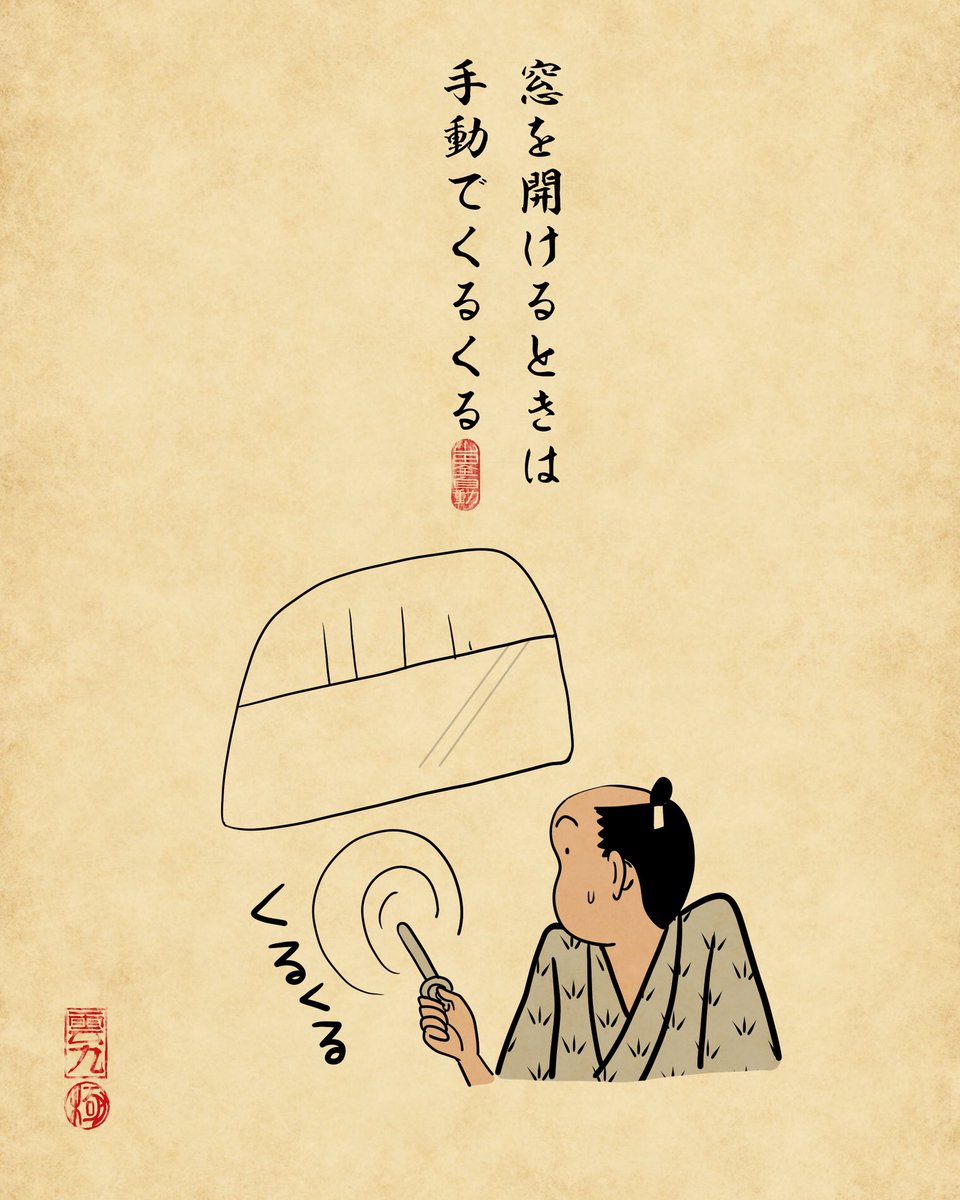 窓を開けるときは
手動でくるくる
くるくる